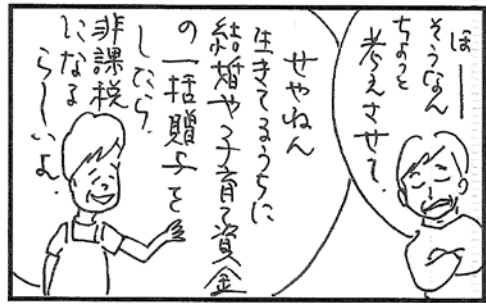 ほーー
そうなん
ちょっと
考えさせて
せやねん
生きてるうちに
結婚や子育て資金
の一括贈与を
したら、
非課税
になる
らーいよ。